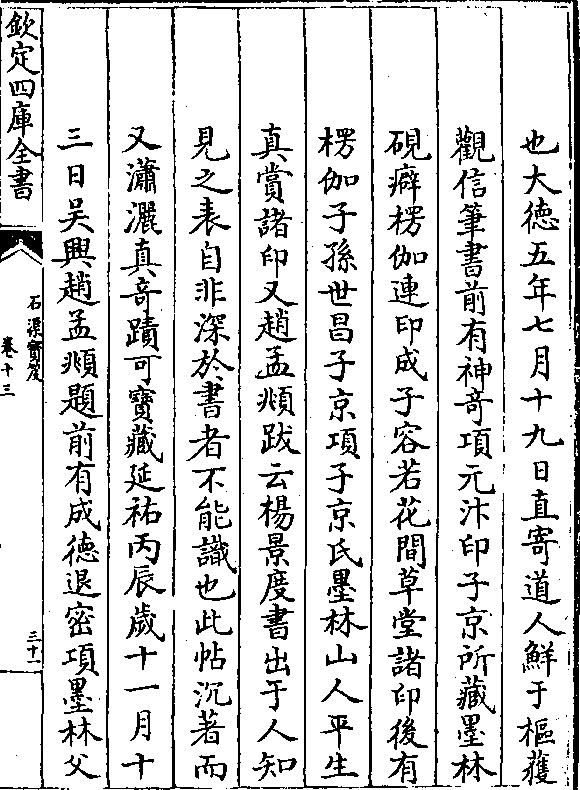 也大德五年七月十九日直寄道人鮮于樞蒦
觀信筆書前有神奇項元汴印子京所藏墨林
硯癖楞伽連印成子容若花間草堂諸印後有
楞伽子孫世昌子京項子京氏墨林山人平生
真賞諸印又趙孟頫跋云楊景度書出于人知
見之表自非深於書者不能識也此帖沉著而
又瀟灑真奇蹟可寶藏延祐丙辰歲十一月十
三日吴興趙孟頫題前有成德退密項墨林父
欽定四庫全書
石渠寶笈
卷十三
三十一